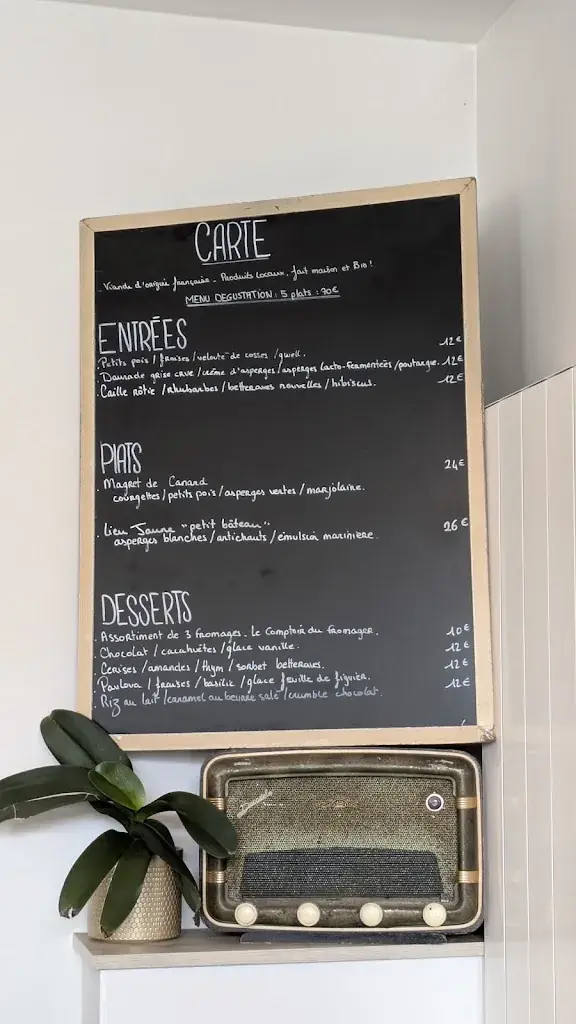 CARTE
Viande d'origine française - Produits Locaux, fait maison et Bio!
MENU DEGUSTATION : 5 plats : 70€
ENTRÉES
. Petits pois / fraises / velouté de cosses / gwell. 12€
. Daurade grise crue / crème d'asperges / asperges lacto-fermentées / poutargue. 12€
. Caille rôtie / rhubarbes / betteraves nouvelles / hibiscus. 12€
PLATS
. Magret de Canard 24€
courgettes / petits pois / asperges vertes / marjolaine.
. Lieu Jaune "petit bâteau". 26€
asperges blanches / artichauts / émulsion marinière.
DESSERTS
. Assortiment de 3 fromages - Le Comptoir du fromager. 10€
. Chocolat / cacahuètes / glace vanille. 12€
. Cerises / amandes / thym / sorbet betteraves. 12€
. Pavlova / fraises / basilic / glace feuille de figuier. 12€
. Riz au lait / caramel au beurre salé / crumble chocolat.